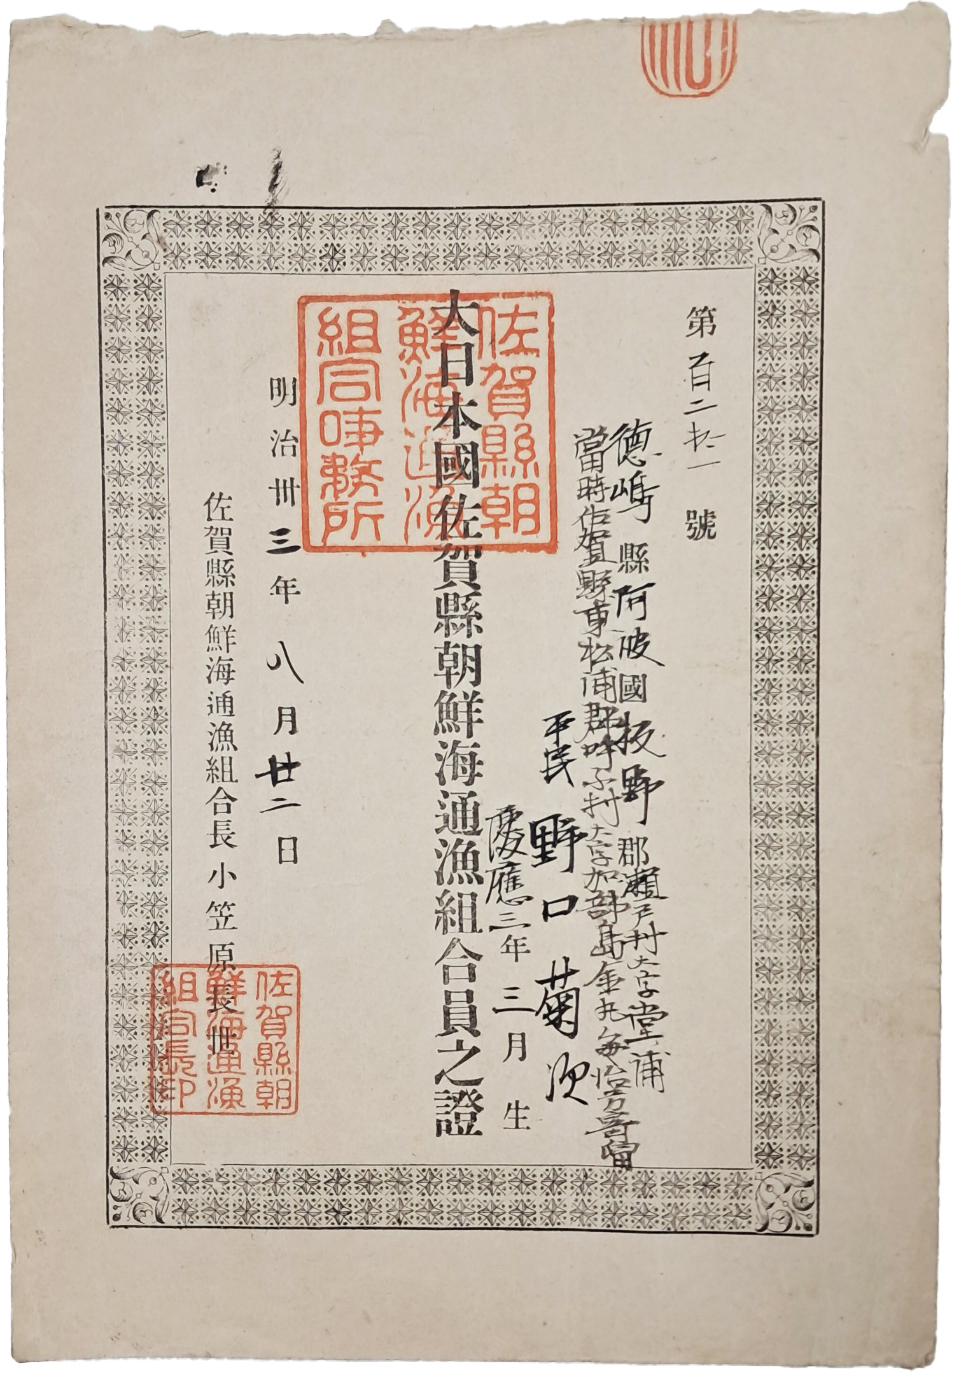 第百二拾一號
德嶋縣阿波國板野郡瀬戸村大字堂浦
當時佐賀縣東松浦郡呼子村大字加部島金丸每治方寄留
平民 野口菊次
慶應三年三月生
大日本國佐賀縣朝鮮海通漁組合員之證
明治卅三年八月廿二日
佐賀縣朝鮮海通漁組合長 小笠原長世
佐賀縣朝
鮮海通漁
組合事務所
佐賀縣朝
鮮海通漁
組合長印